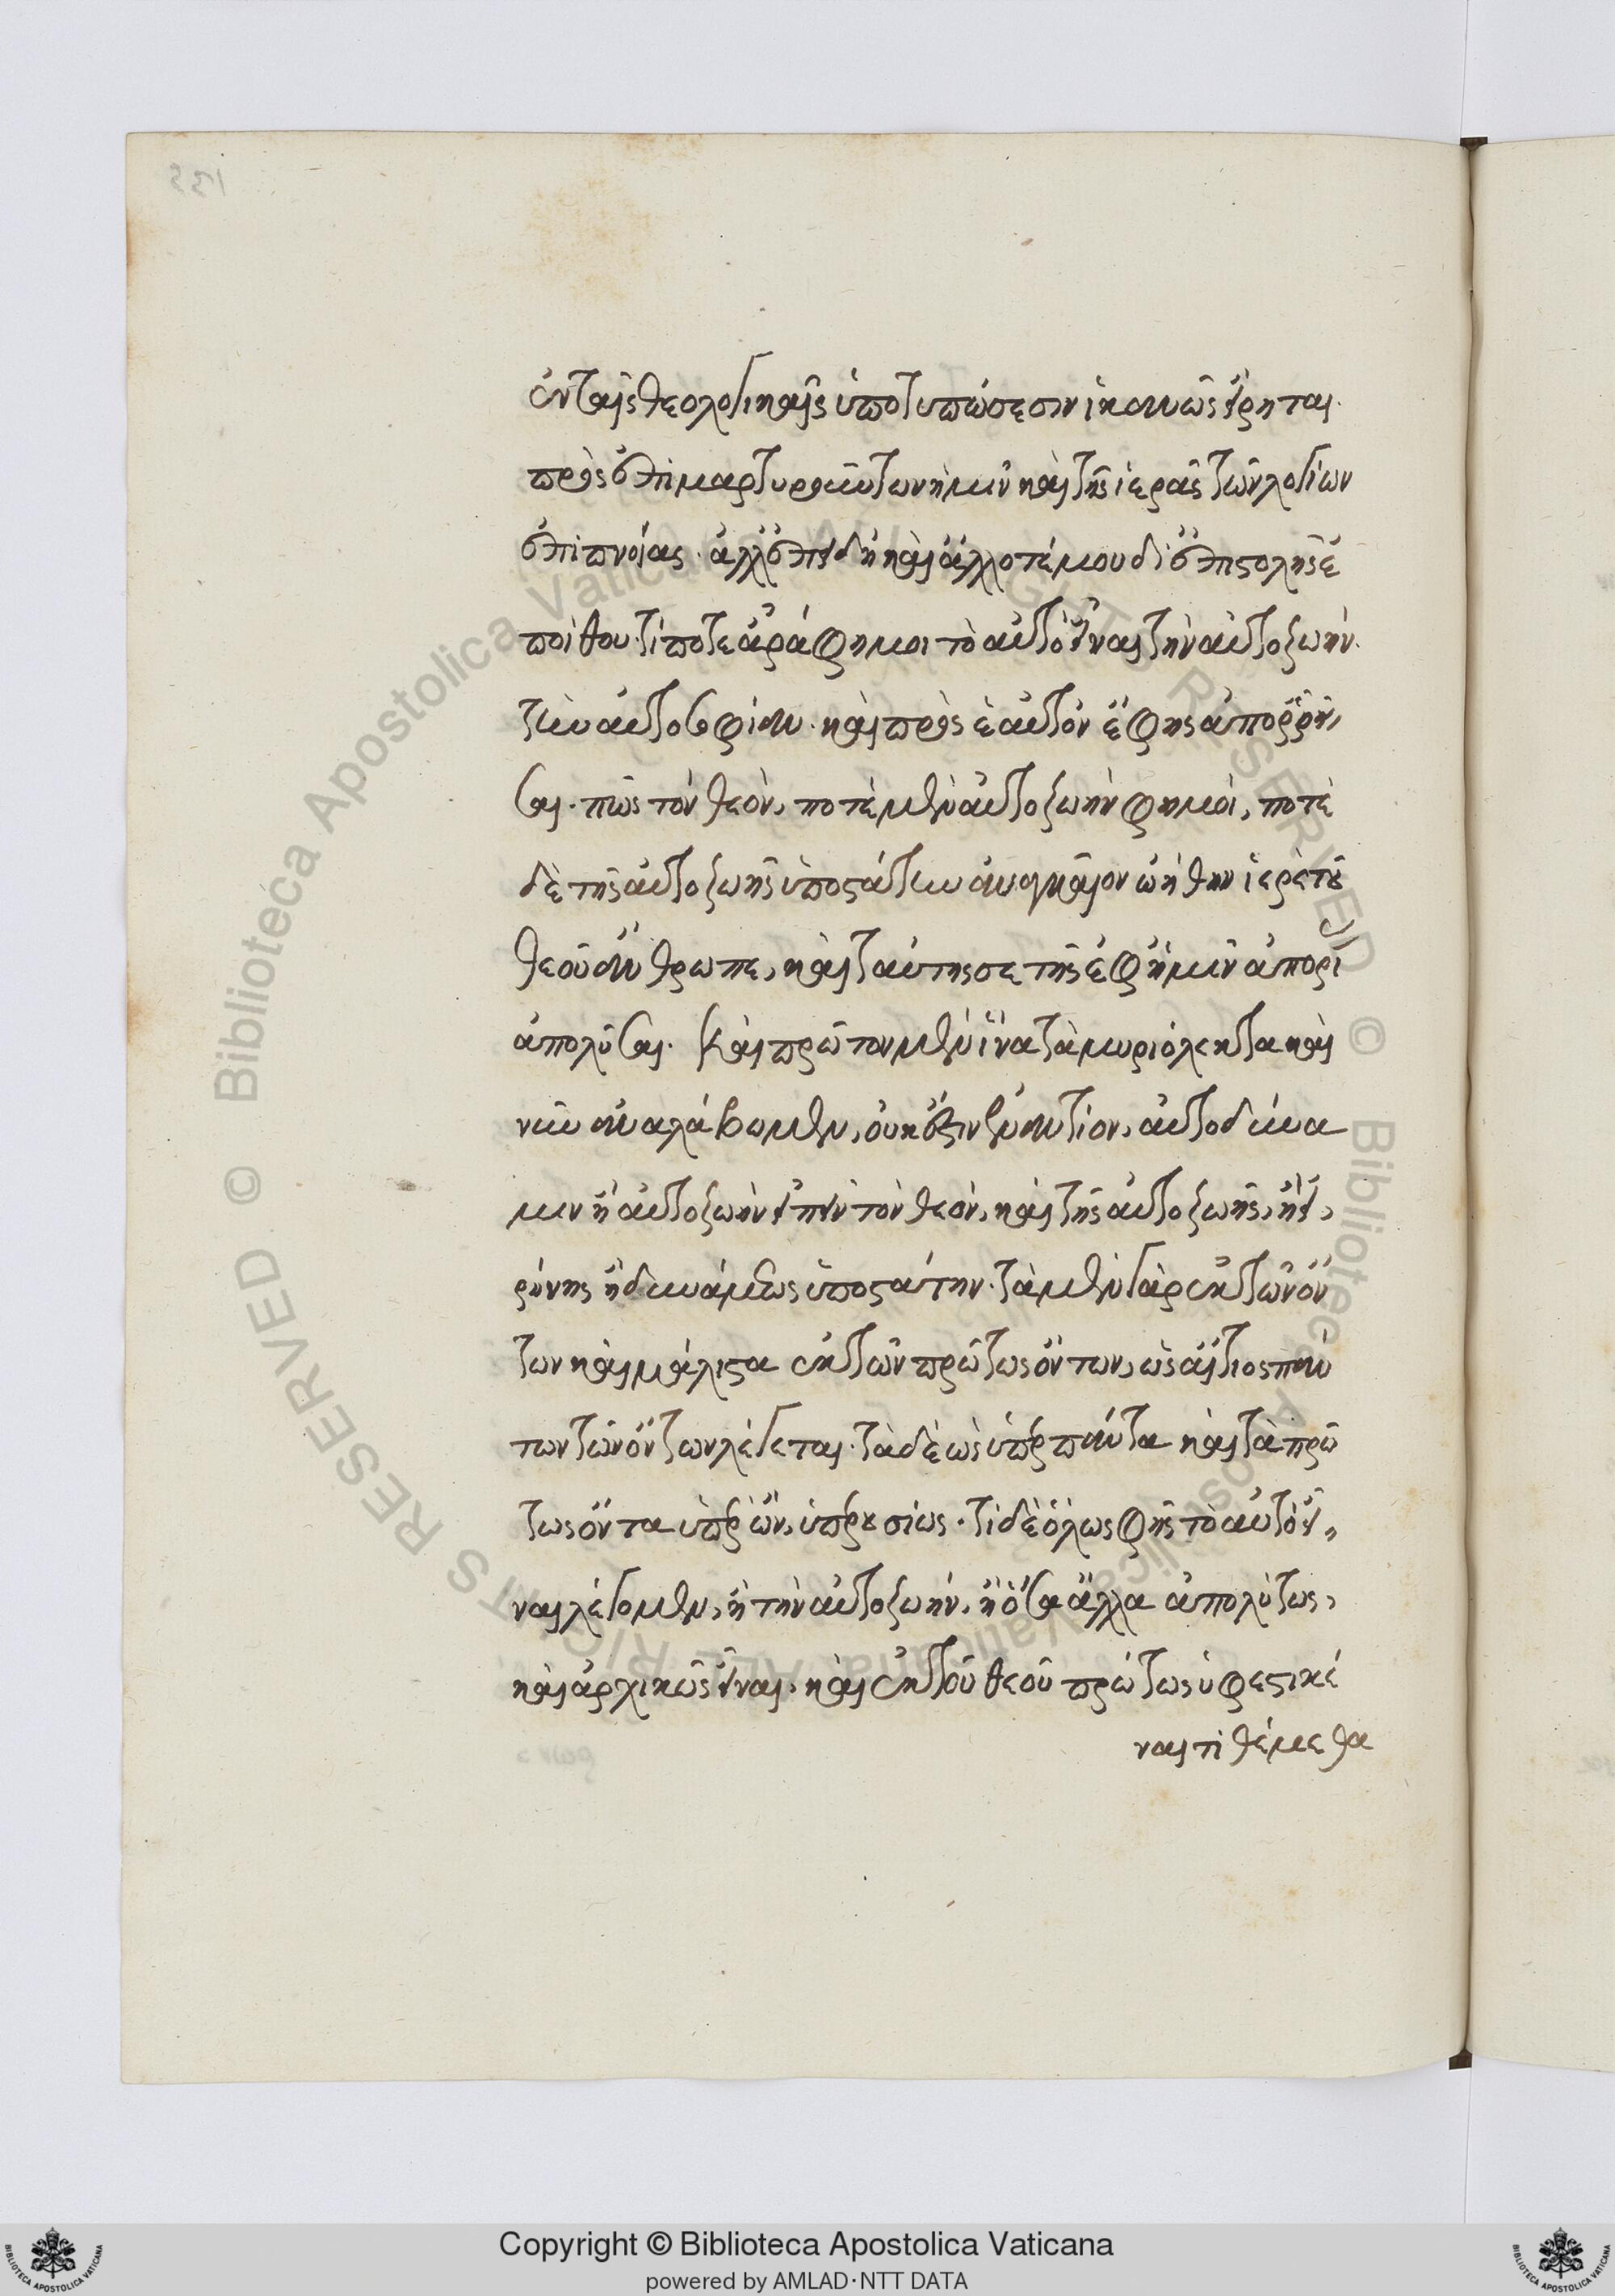 ἐν ταῖς θεολογικαῖς ὑποτυπώσεσιν ἱκανῶς εἴρηται.
πρὸς ἐπιμαρτυρούντων ἡμῖν καὶ τῆς ἱερᾶς τῶν λογίων
ἐπιπνοίας. ἀλλ' ἐπειδὴ καὶ ἄλλοτέ μου δι' ἐπιστολῆς ἐ
πύθου τί ποτε ἄρα φημοι τὸ αὐτὸ εἶναι τὴν αὐτοζωὴν.
τὴν αὐτοσοφίαν. καὶ πρὸς ἑαυτὸν ἔφης ἀπορρῆ,
σαι. πῶς τὸν θεὸν, ποτὲ μὲν αὐτοζωήν φημοι, ποτὲ
δὲ τῆς αὐτοζωῆς ὑποστάτην ἀναγκαῖον ᾠήθην ἱερὲ τοῦ
θεοῦ ἄνθρωπε, καὶ ταύτης σε τῆς ἐφ' ἡμῖν ἀπορί
ἀπολῦσαι. Καὶ πρῶτον μὲν ἵνα τὰ μυριόλεκτα καὶ
νῦν ἀναλάβωμεν, οὐκ ἔστιν ἐναντίον, αὐτοδύνα
μιν ἢ αὐτοζωὴν εἰπεῖν τὸν θεόν, καὶ τῆς αὐτοζωῆς, ἢ εἰ,
ρήνης ἢ δυνάμεως ὑποστάτην. τὰ μὲν γὰρ ἐκ τῶν ὄν
των καὶ μάλιστα ἐκ τῶν πρώτως ὄντων, ὡς αἴτιος πάν
των τῶν ὄντων λέγεται. τὰ δὲ ὡς ὑπὲρ πάντα καὶ τὰ πρώ
τως ὄντα ὑπὲρ ὢν, ὑπερουσίως. τί δὲ ὅλως φῂς τὸ αὐτὸ εἶ,
ναι λέγομεν, ἢ τὴν αὐτοζωήν, ἢ ὅσα ἄλλα ἀπολύτως,
καὶ ἀρχικῶς εἶναι. καὶ ἐκ τοῦ θεοῦ πρώτως ὑφεστικέ
ναι τιθέμεθα
Copyright © Biblioteca Apostolica Vaticana
powered by AMLAD·NTT DATA